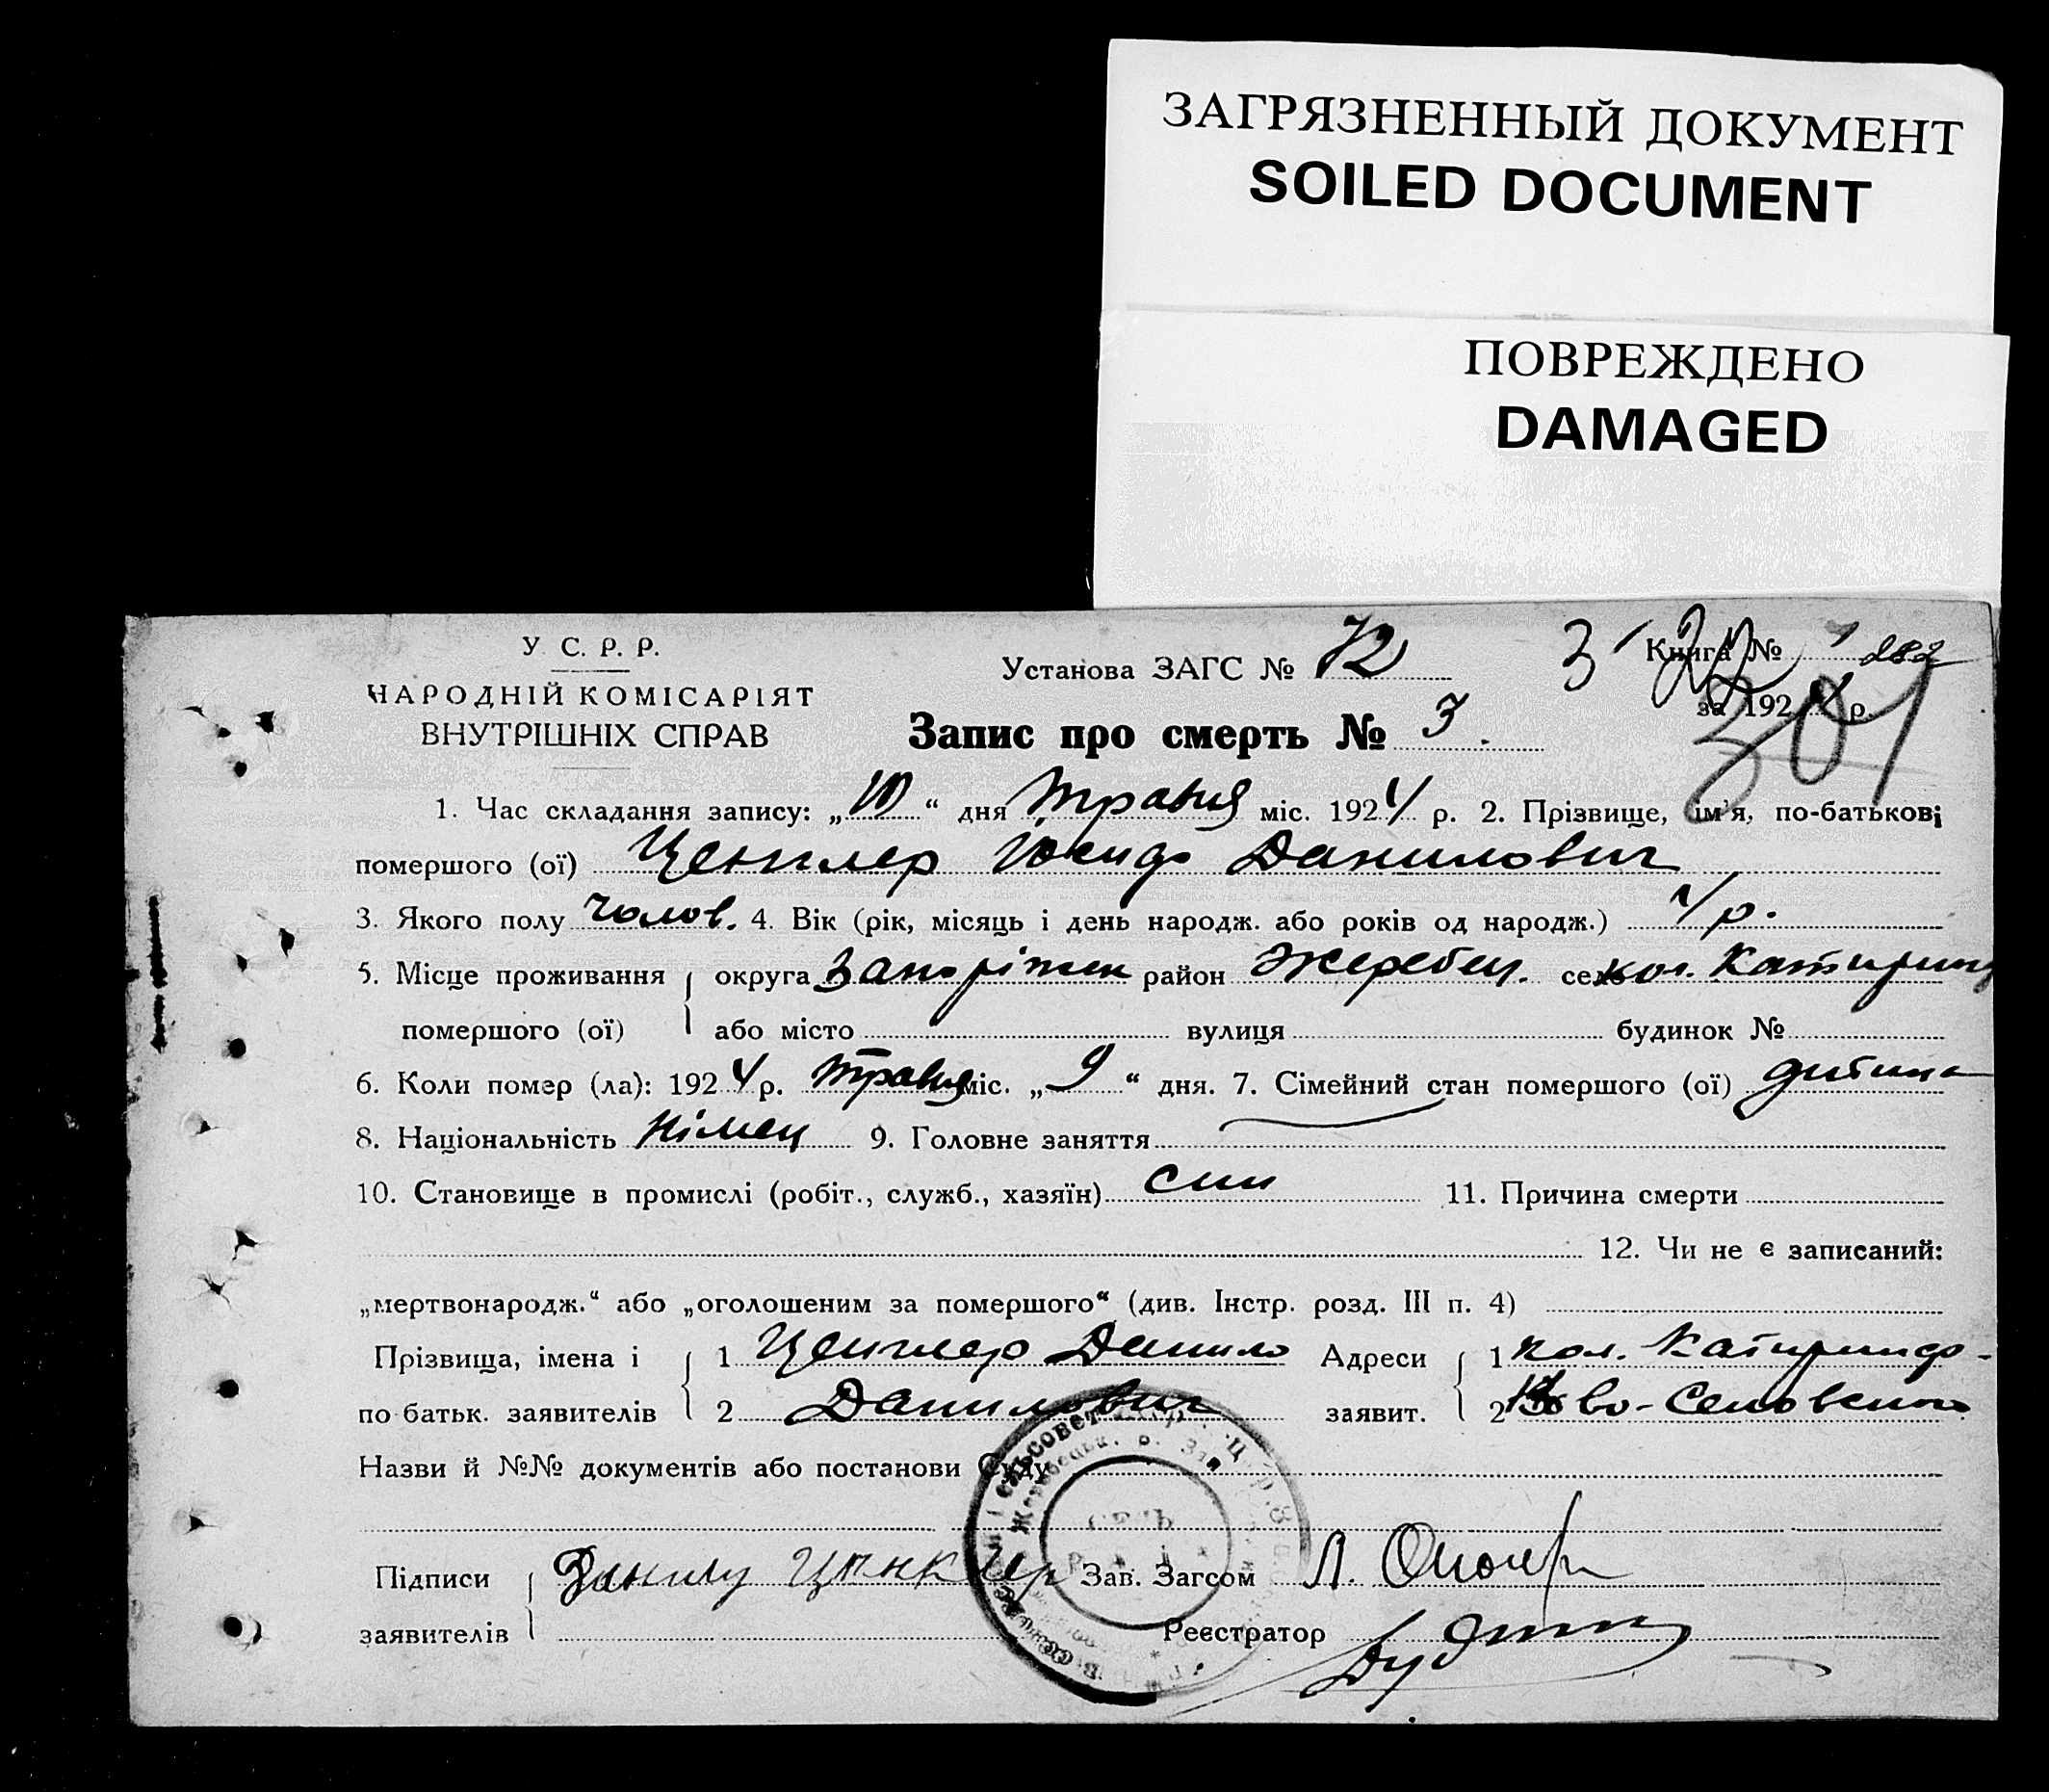 ЗАГРЯЗНЕННЫЙ ДОКУМЕНТ
SOILED DOCUMENT
ПОВРЕЖДЕНО
DAMAGED
У. С. Р. Р.
НАРОДНІЙ КОМІСАРІЯТ
ВНУТРІШНІХ СПРАВ
Установа ЗАГС № 72
Книга № 282
за 1924 р.
301
Запис про смерть № 3.
1. Час складання запису: „10“ дня травня міс. 1924 р. 2. Прізвище, ім'я, по-батькові
помершого (ої) Данилович
3. Якого полу чолов. 4. Вік (рік, місяць і день народж. або років од народж.) р.
5. Місце проживання округа Запоріжж район Жеребец. село кол.
помершого (ої) або місто вулиця будинок №
6. Коли помер (ла): 1924 р. травня міс. „9“ дня. 7. Сімейний стан помершого (ої) дитина
8. Національність німец 9. Головне заняття
10. Становище в промислі (робіт., служб., хазяїн) син 11. Причина смерти
12. Чи не є записаний:
„мертвонародж.“ або „оголошеним за помершого“ (див. Інстр. розд. III п. 4)
Прізвища, імена і 1 Данило Адреси 1 кол.
по батьк. заявителів 2 Данилович заявит. 2
Назви й №№ документів або постанови Суду
Підписи Зав. Загсом
заявителів Реєстратор